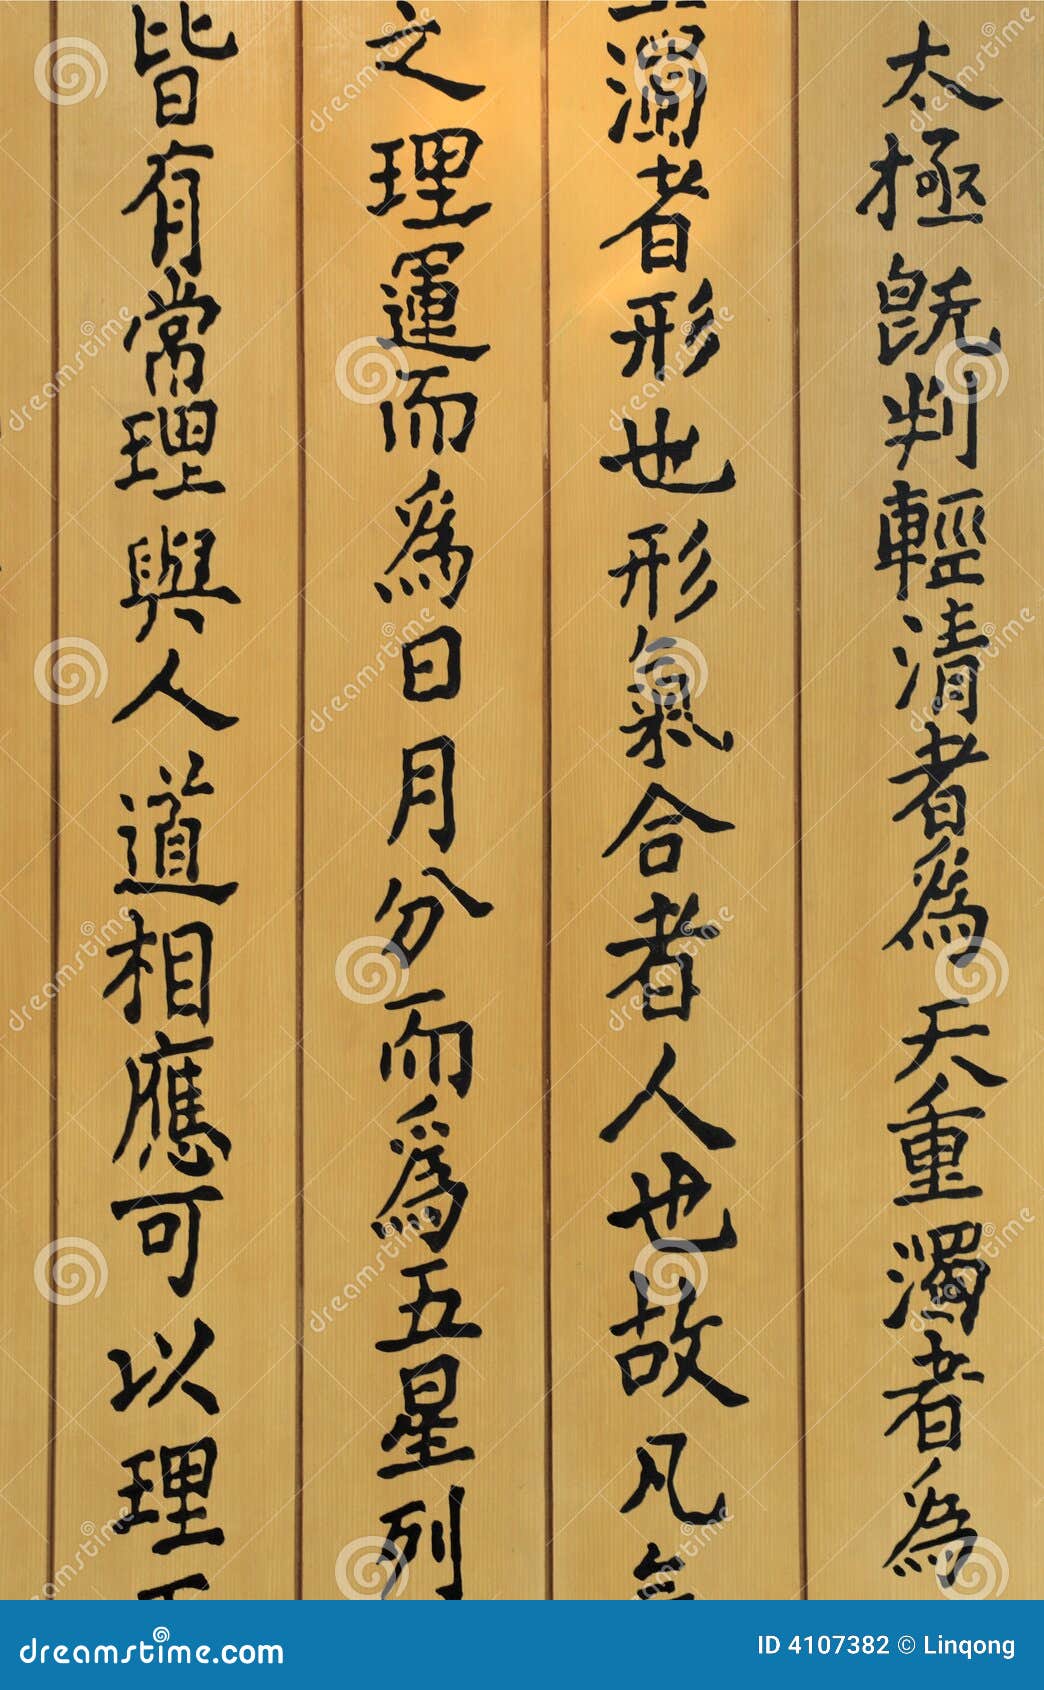 太極旣判輕清者為天重濁者為
濁者形也形氣合者人也故凡氣
之理運而為日月分而為五星列
皆有常理與人道相應可以理
dreamstime.com
ID 4107382 © Linqong